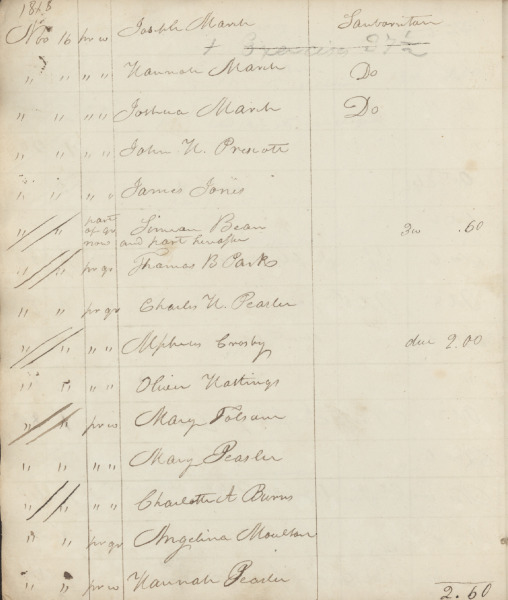 1848
Nov 16 pr w Joseph March Sanbornton
+ 27½
" " " " Hannah March Do
" " " " Joshua March Do
" " " " John H. Prescott
" " " " James Jones
" " part of qr now Simeon Bean and part hereafter .60
" " pr qr Thomas B Parks
" " pr qr Charles H. Peasler
" " " " Alpheus Crosby due 2.00
" " " " Oliver Hastings
" " pr w Mary Folsom
" " " " Mary Peasler
" " Charlotte A Burns
" " pr qr Angelina Moulton
" " pr w Hannah Peasler
2.60